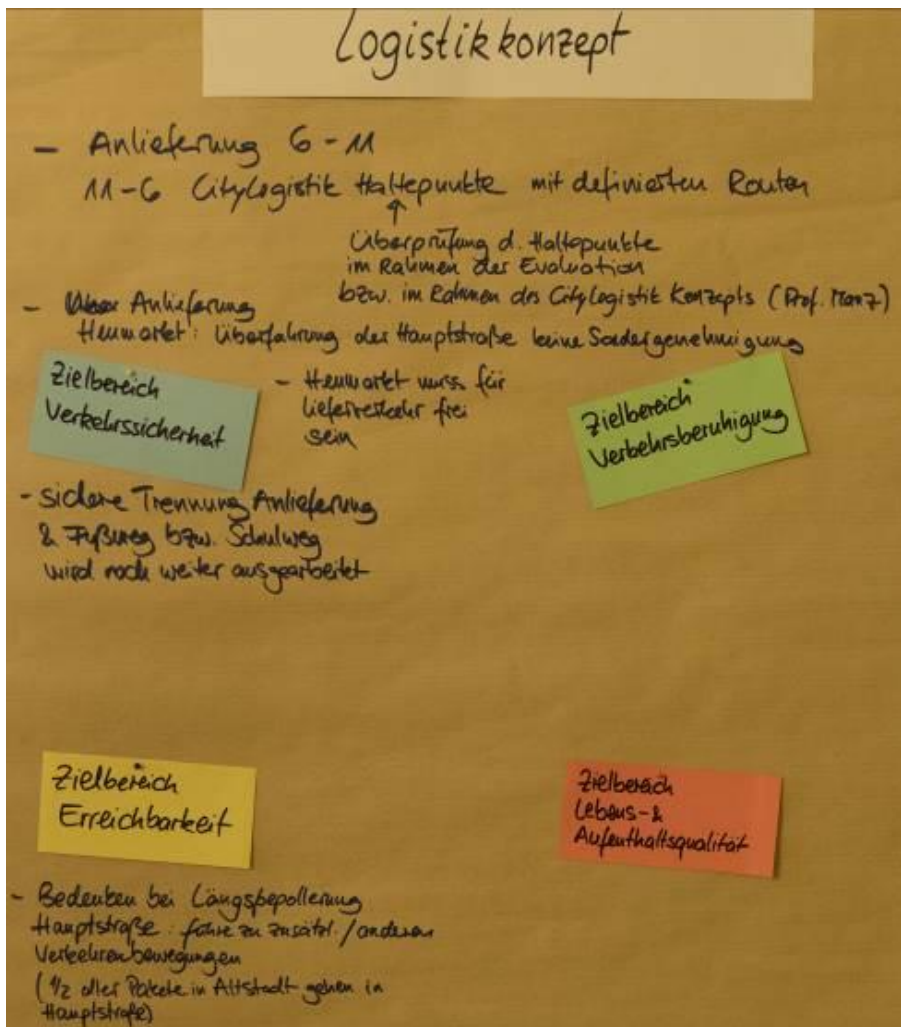 Logistikkonzept
- Anlieferung 6-11
11-6 Citylogistik Haltepunkte mit definierten Routen
↑
Überprüfung d. Haltepunkte
im Rahmen der Evaluation
bzw. im Rahmen des Citylogistik Konzepts (Prof. Manz)
- Anlieferung
Heumarkt: Überfahrung der Hauptstraße keine Sondergenehmigung
- Heumarkt muss für
Lieferverkehr frei
sein
Zielbereich
Verkehrssicherheit
Zielbereich
Verkehrsberuhigung
- sichere Trennung Anlieferung
& Fußweg bzw. Schulweg
wird noch weiter ausgearbeitet
Zielbereich
Erreichbarkeit
Zielbereich
Lebens- &
Aufenthaltsqualität
- Bedenken bei Längsbepollerung
Hauptstraße: führe zu zusätzl. / anderen
Verkehrenbewegungen
(1/2 aller Pakete in Altstadt gehen in
Hauptstraße)